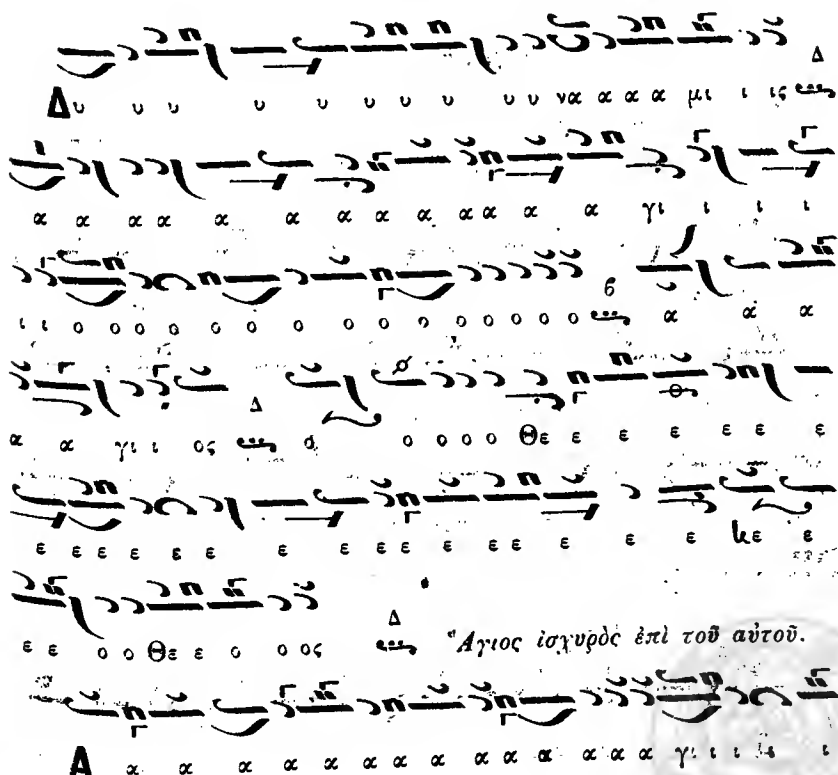 Δυ υ υ υ υ υ υ υ υ υ να α α α μι ι ις Δ
α α α α α α α α α α α α α γι ι ι ι
ι ι ο ο ο ο ο ο ο ο ο ο ο ο ο ο ο ο β α α α
α α γι ι ος Δ ο ο ο ο ο Θε ε ε ε ε ε ε
ε ε ε ε ε ε ε ε ε ε ε ε ε ε ε ε κε ε
ε ε ο ο Θε ε ο ο ος Δ Ἅγιος ἰσχυρὸς ἐπὶ τοῦ αὐτοῦ.
Α α α α α α α α α α α α α α γι ι ι ι ι